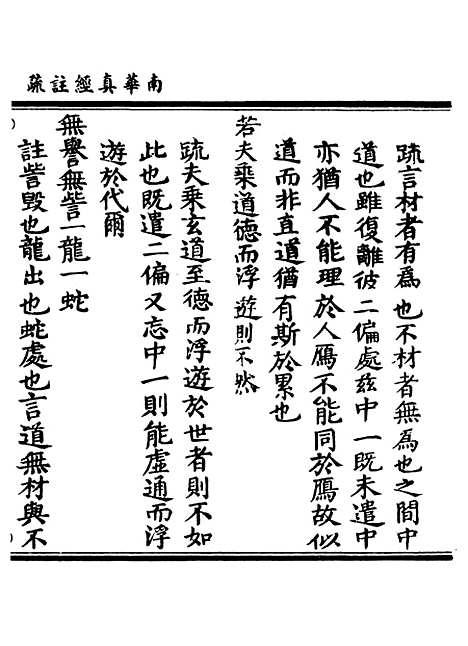 南華真經註疏
疏言材者有為也不材者無為也之間中
道也雖復離彼二偏處兹中一既未遣中
亦猶人不能理於人鴈不能同於鴈故似
道而非真道猶有斯於累也
若夫乗道德而浮遊則不然
疏夫乗玄道至德而浮遊於世者則不如
此也既遣二偏又忘中一則能虛通而浮
遊於代爾
無譽無訾一龍一蛇
註訾毀也龍出也蛇處也言道無材與不